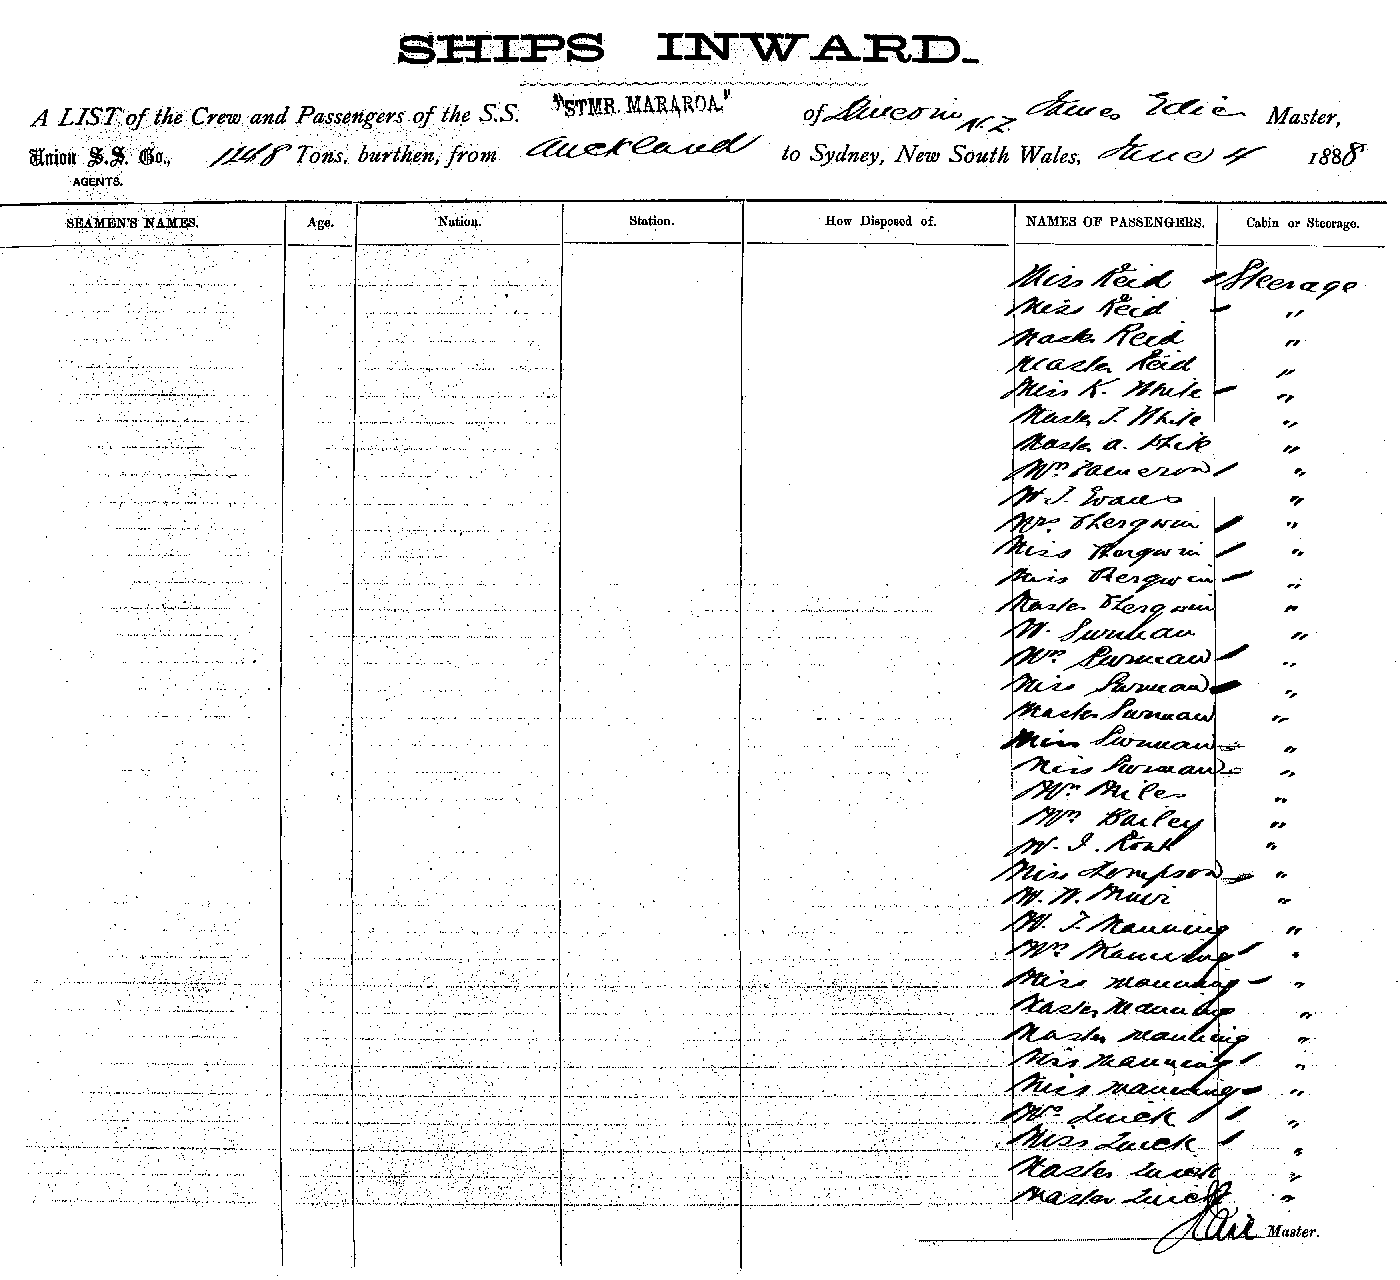 SHIPS INWARD.
A LIST of the Crew and Passengers of the S.S. "STMR. MARAROA." of N.Z. James Edie Master,
Union S.S. Co., 1448 Tons, burthen, from Auckland to Sydney, New South Wales, June 4 1888
AGENTS.
SEAMEN'S NAMES. Age. Nation. Station. How Disposed of. NAMES OF PASSENGERS. Cabin or Steerage.
Miss Reid Steerage
Miss Reid "
Master Reid "
Master Reid "
Miss K. White "
Master J. White "
Master A. White "
Mrs Cameron "
Mr J. Evans "
Mrs "
Miss "
Miss "
Master "
Mr Surman "
Mrs Surman "
Miss Surman "
Master Surman "
Miss Surman "
Miss Surman "
Mrs Miles "
Mrs Bailey "
Mr J. "
Miss Tompson "
Mr W. Muir "
Mr J. Manning "
Mrs Manning "
Miss Manning "
Master Manning "
Master Manning "
Miss Manning "
Miss Manning "
Mrs Luick "
Miss Luick "
Master Luick "
Master Luick "
Master.